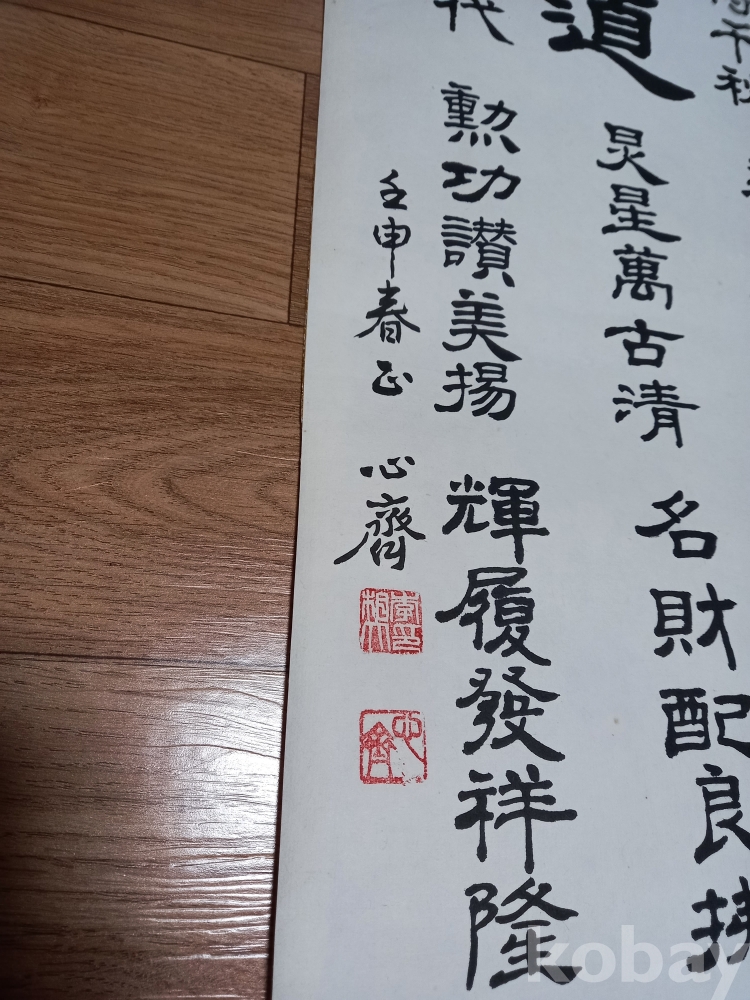 千秋
道 炅星萬古清 名財配良
代 勲功讃美揚 輝履發祥隆
壬申春正 心齊
心齊
kobay